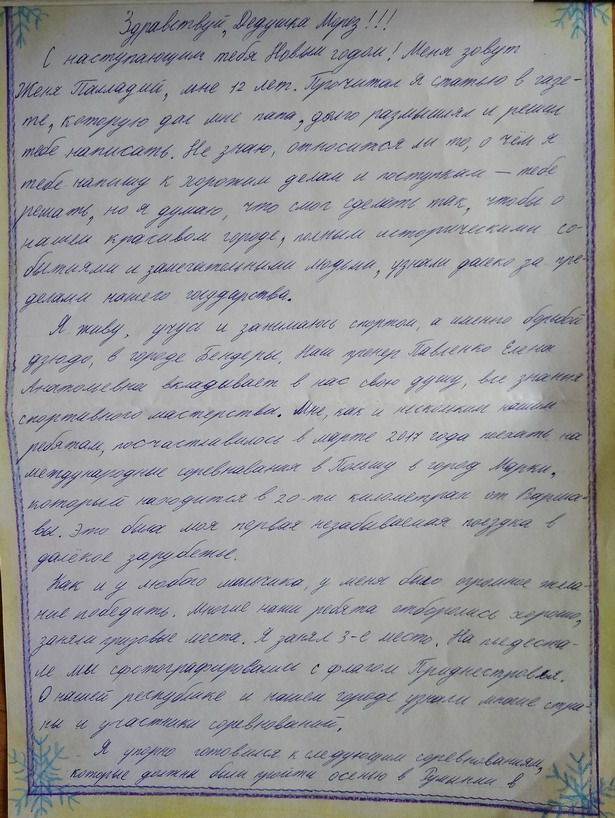 Здравствуй, Дедушка Мороз!!!
С наступающим тебя Новым годом! Меня зовут
Женя Палладий, мне 12 лет. Прочитал я статью в газе-
те, которую дал мне папа, долго размышлял и решил
тебе написать. Не знаю, относится ли то, о чём я
тебе напишу к хорошим делам и поступкам – тебе
решать, но я думаю, что смог сделать так, чтобы о
нашем красивом городе, полным историческими со-
бытиями и замечательными людьми, узнали далеко за пре-
делами нашего государства.
Я живу, учусь и занимаюсь спортом, а именно борьбой
дзюдо, в городе Бендеры. Наш тренер Павленко Елена
Анатольевна вкладывает в нас свою душу, все знания
спортивного мастерства. Мне, как и нескольким нашим
ребятам, посчастливилось в марте 2017 года поехать на
международные соревнавания в Польшу в город Марки,
который находится в 20-ти километрах от Варша-
вы. Это была моя первая незабываемая поездка в
далёкое зарубежье.
Как и у любого мальчика, у меня было огромное жела-
ние победить. Многие наши ребята отборолись хорошо,
заняли призовые места. Я занял 3-е место. На пьедеста-
ле мы сфотографировались с флагом Приднестровья.
О нашей республике и нашем городе узнали многие стра-
ны и участники соревнований.
Я упорно готовился к следующим соревнованиям,
которые должны были пройти осенью в Румынии в